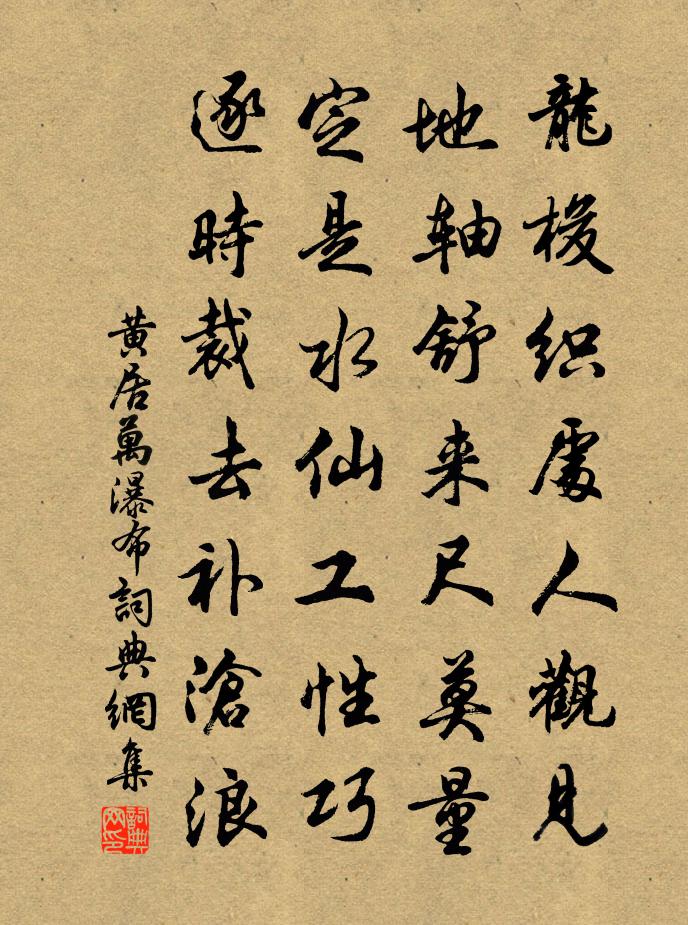 龍梭织處人觀見
地轴舒来尺莫量
定是水仙工性巧
逐時裁去补滄浪
黄居萬瀑布詞典網集
詞典网印